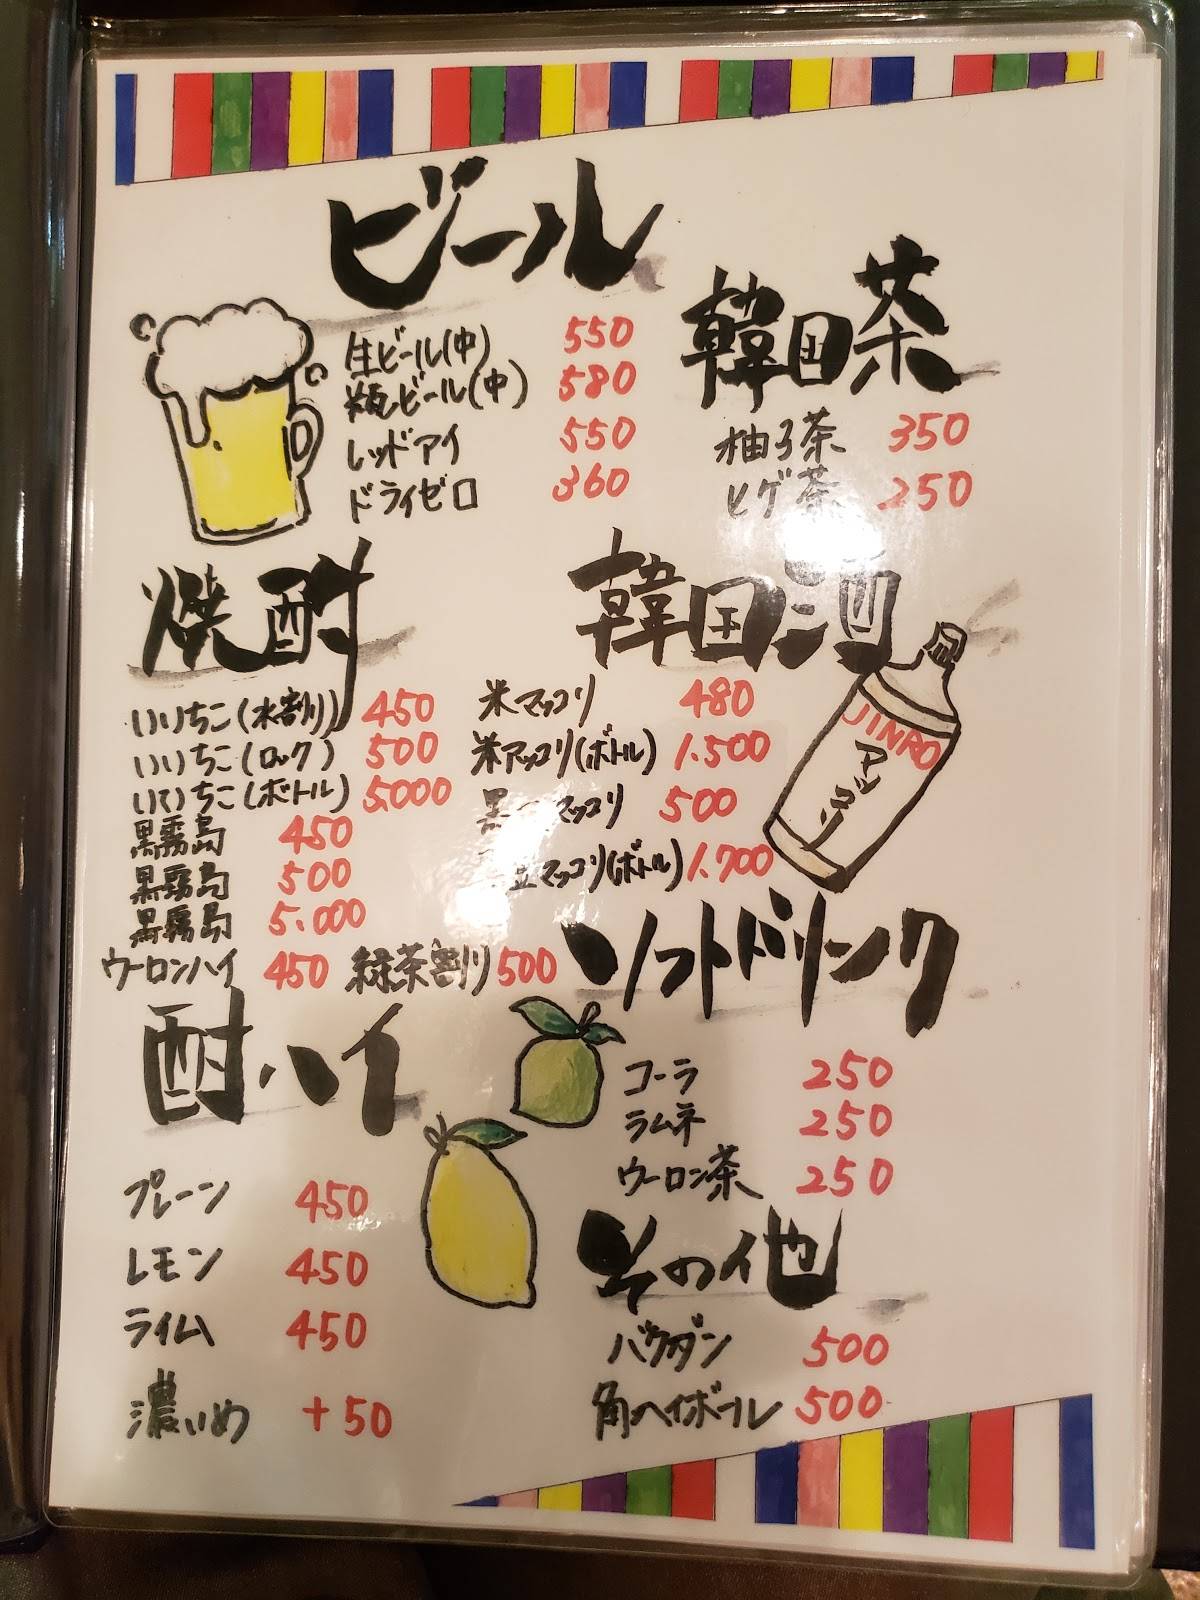 ビール
生ビール(中) 550
瓶ビール(中) 580
レッドアイ 550
ドライゼロ 360
韓国茶
柚子茶 350
ヒゲ茶 250
焼酎
いいちこ(水割り) 450
いいちこ(ロック) 500
いいちこ(ボトル) 5.000
黒霧島 450
黒霧島 500
黒霧島 5.000
ウーロンハイ 450 緑茶割り 500
韓国酒
米マッコリ 480
米マッコリ(ボトル) 1.500
黒 マッコリ 500
豆マッコリ(ボトル) 1.700
JINRO
マッコリ
酎ハイ
プレーン 450
レモン 450
ライム 450
濃いめ +50
ソフトドリンク
コーラ 250
ラムネ 250
ウーロン茶 250
その他
バクダン 500
角ハイボール 500